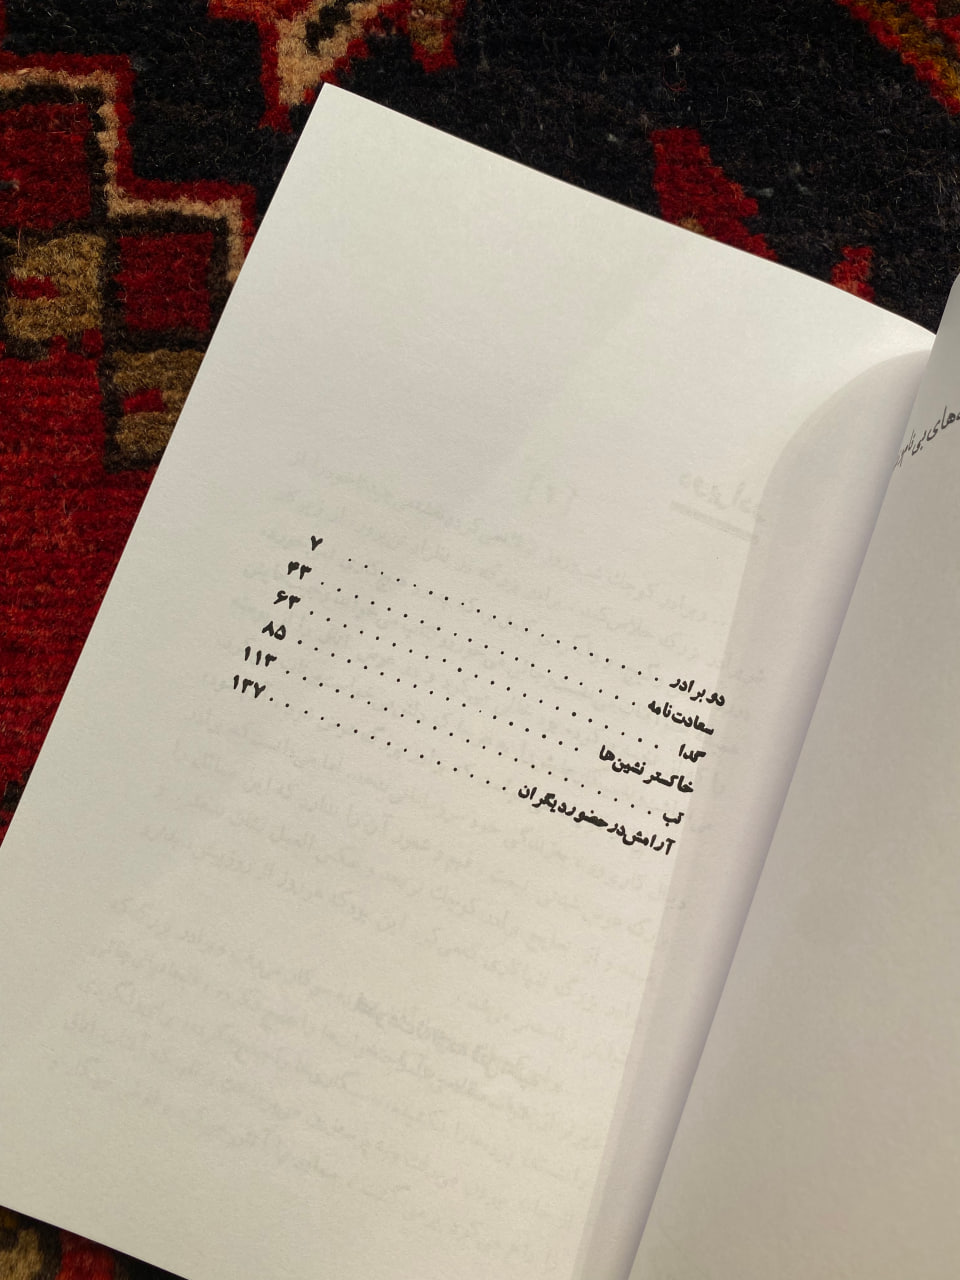 دو برادر . . . . . . . . . . . . ۷
سعادت‌نامه . . . . . . . . . . . . ۴۳
گدا . . . . . . . . . . . . ۶۳
خاکستر نشین‌ها . . . . . . . . . . . . ۸۵
تب . . . . . . . . . . . . ۱۱۳
آرامش در حضور دیگران . . . . . . . . . ۱۳۷